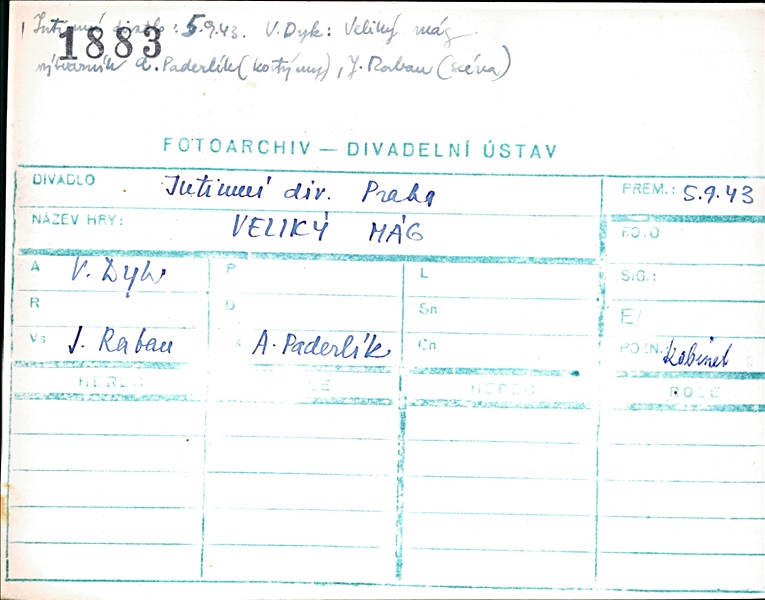 Intimní divadlo: 5.9.43. V. Dyk: Veliký mág
1883
výtvarník A. Paderlík (kostýmy), J. Raban (scéna)
FOTOARCHIV — DIVADELNÍ ÚSTAV
DIVADLO Intimní div. Praha PREM.: 5.9.43
NÁZEV HRY: VELIKÝ MÁG FOTO
A V. Dyk P L SIG.:
R D Sn E/
Vs J. Raban K A. Paderlík Cn POZN.: Kabinet
HEREC ROLE HEREC ROLE